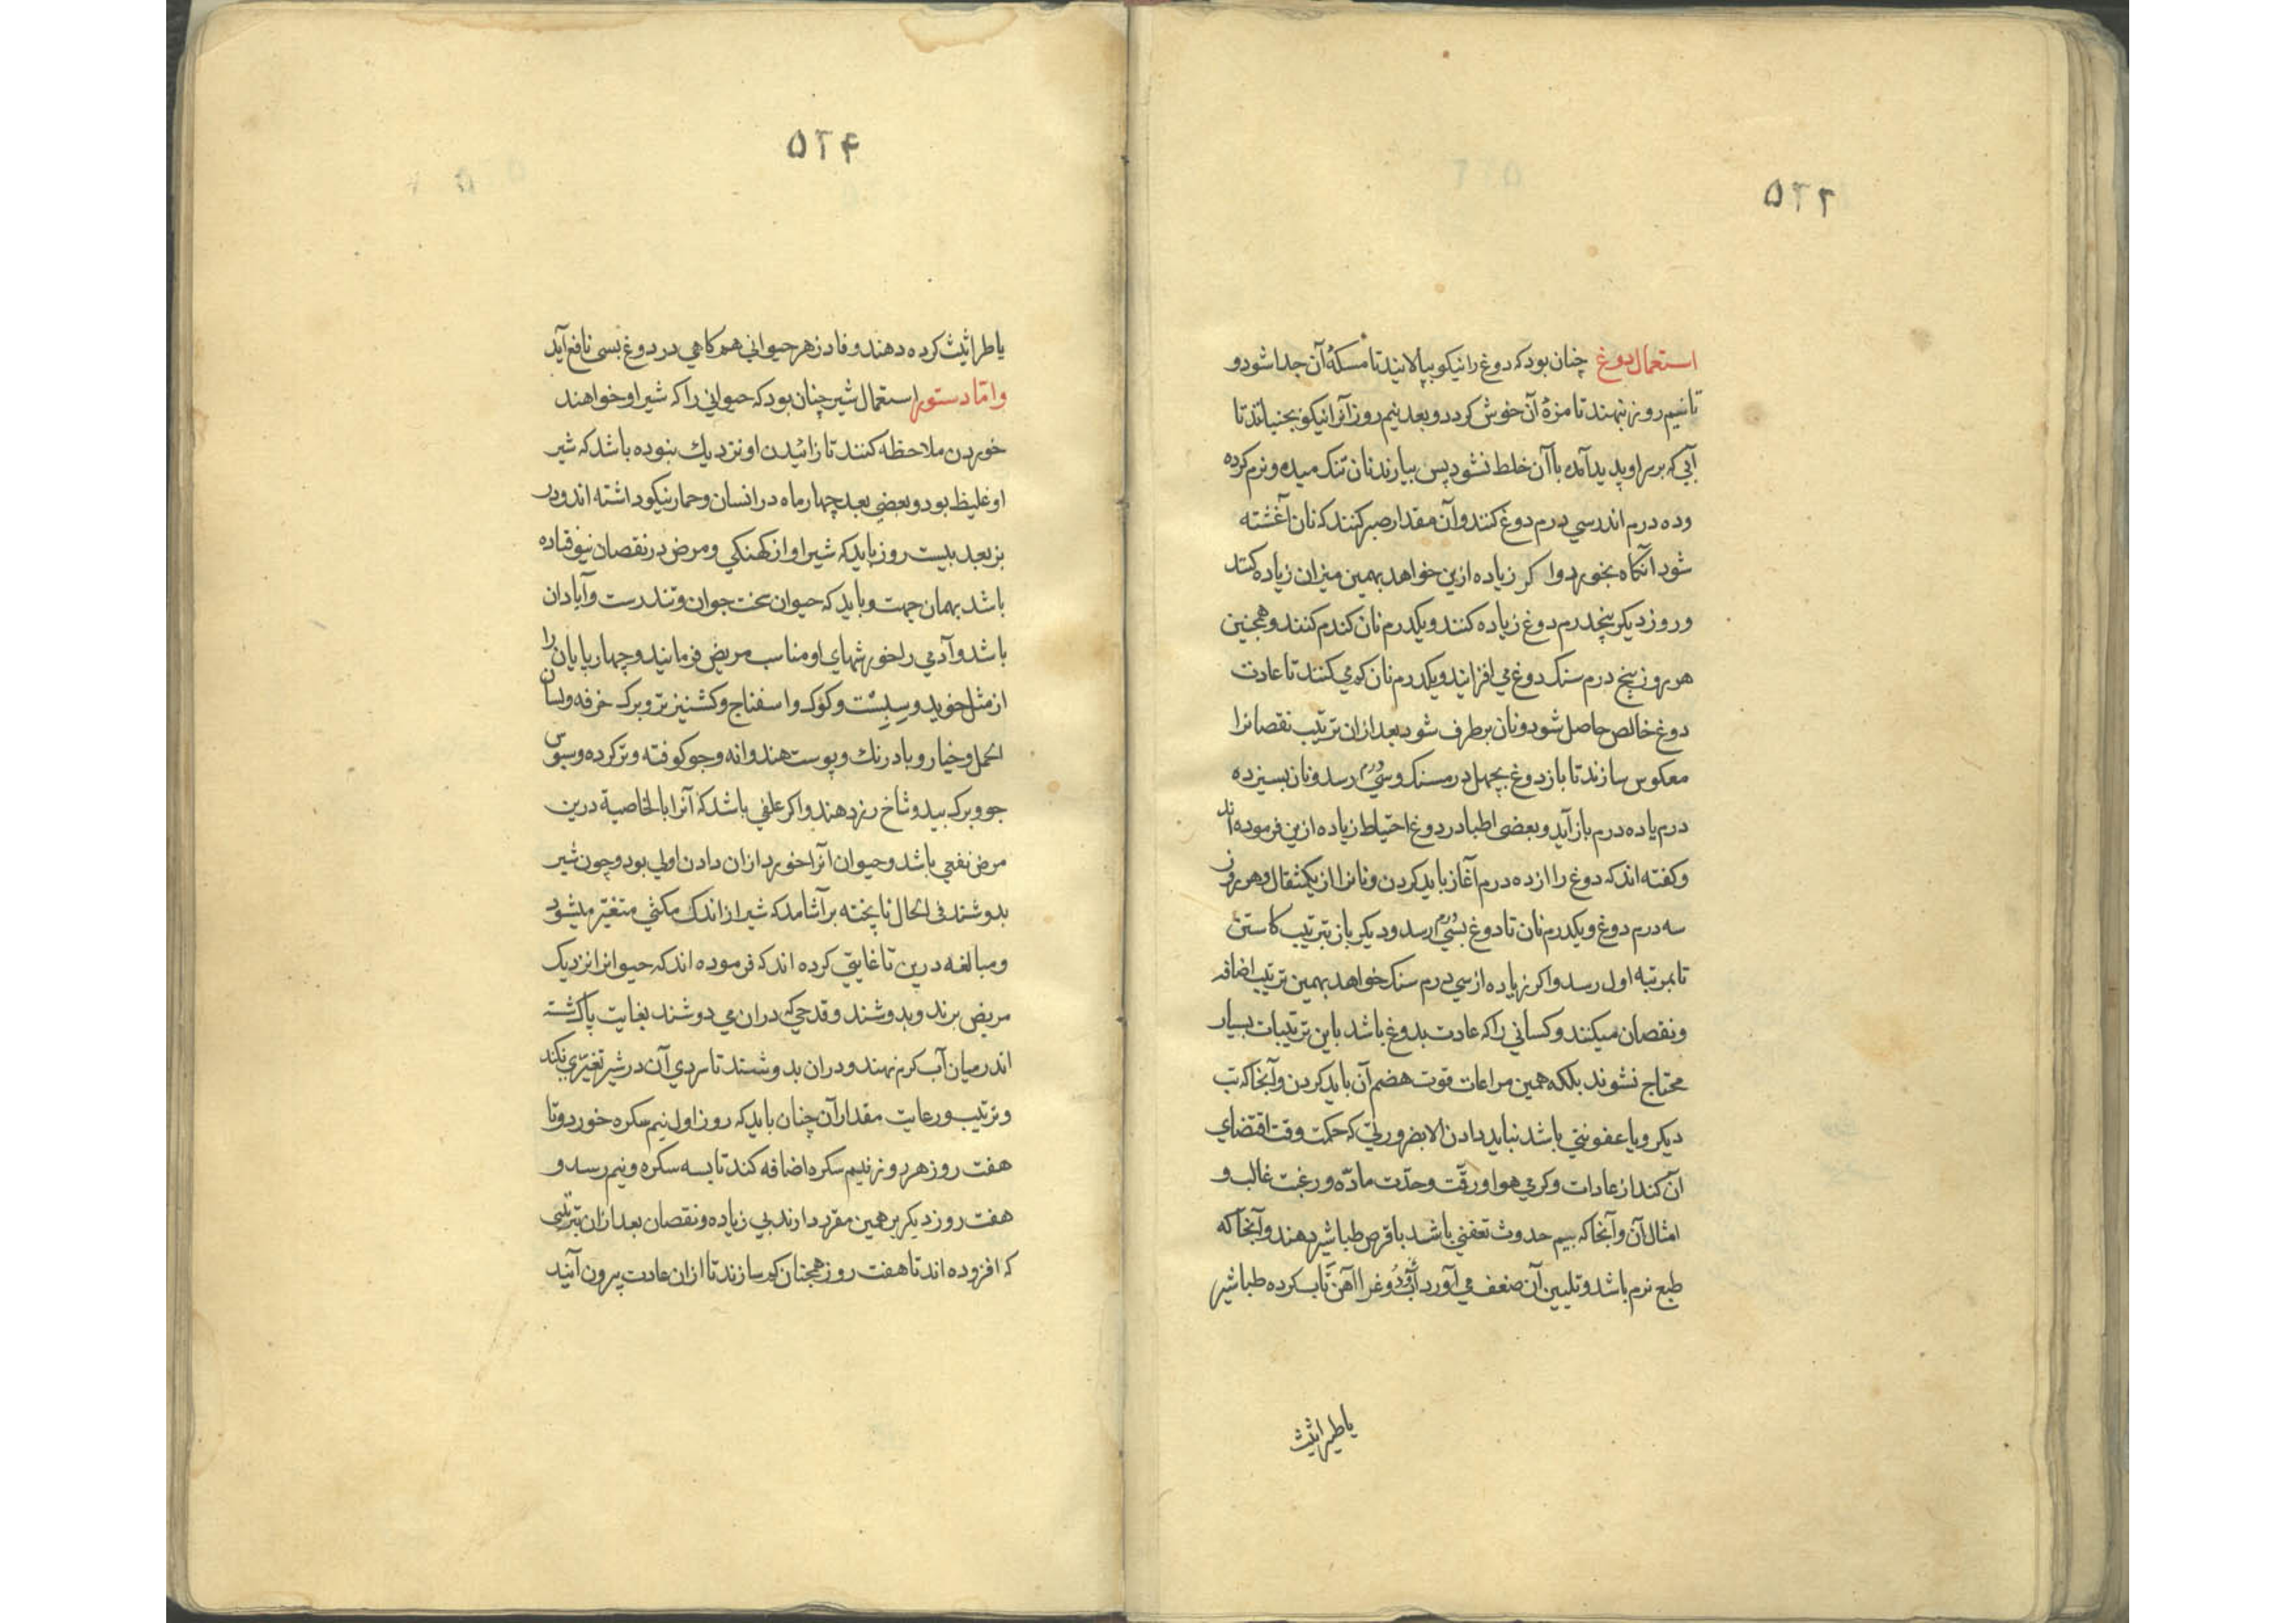 ۵۲۳
استعمال دوغ چنان بود که دوغ را نیکو بپالایند تا مسکهٔ آن جدا شود و
تا نیم روز بنهند تا مزهٔ آن خوش کردد و بعد نیم روز آنرا نیکو بجنبانند تا
آبی که بر سر او پدید آمده با آن خلط شود پس بیارند نان تنک میده و نرم کرده
و ده درم اندر سی درم دوغ کنند و آن مقدار صبر کنند که نان آغشته
شود آنکاه بخورد و اکر زیاده ازین خواهد بهمین میزان زیاده کنند
و روز دیکر پنجدرم دوغ زیاده کنند و یکدرم نان کندم کنند و همچنین
هر روز پنج درم سنک دوغ می افزایند و یکدرم نان کم می کنند تا عادت
دوغ خالص حاصل شود و نان بر طرف شود بعد ازان ترتیب نقصانرا
معکوس سازند تا باز دوغ بچهل درمسنک و سی درم رسد و نان بسیزده
درم یا ده درم باز آید و بعضی اطبا در دوغ احتیاط زیاده ازین فرموده اند
و کفته اند که دوغ را از ده درم آغاز باید کردن و نانرا از یکمثقال و هر روز
سه درم دوغ و یکدرم نان تا دوغ بسی درم رسد و دیکر باز بترتیب کاستن
تا بمرتبه اول رسد و اکر زیاده از سی درم سنک خواهد بهمین ترتیب اضافه
و نقصان میکنند و کسانی را که عادت بدوغ باشد باین ترتیبات بسیار
محتاج نشوند بلکه همین مراعات قوت هضم آن باید کردن و آنجا که تب
دیکر و یا عفونتی باشد نباید دادن الا بضرورتی که حکمت وقت اقتضای
آن کند از عادات و کرمی هوا و رقّت و حدّت مادّه و رغبت غالب و
امثال آن و آنجا که بیم حدوث تعفنی باشد با قرص طباشیر دهند و آنجا که
طبع نرم باشد و تلیین آن ضعف می آورد دوغرا آهن تاب کرده طباشیر
یا طراثیث
۵۲۴
یا طراثیث کرده دهند و فادزهر حیوانی هم کاهی در دوغ بسی نافع آید
و امّا دستور استعمال شیر چنان بود که حیوانی را که شیر او خواهند
خوردن ملاحظه کنند تا زائیدن او نزدیک نبوده باشد که شیر
او غلیظ بود و بعضی بعد چهار ماه در انسان و حمار نیکو داشته اند و در
بز بعد بیست روز باید که شیر او از کهنکی و مرض در نقصان نیوفتاده
باشد بهمان جهت و باید که حیوان سخت جوان و تندرست و آبادان
باشد و آدمی را خورشهای او مناسب مریض فرمایند و چهارپایان را
از مثل خوید و سبست و کوک و اسفناج و کشنیز تر و برک خرفه و لسان
الحمل و خیار و بادرنک و پوست هندوانه و جو کوفته و تر کرده و سبوس
جو و برک بید و شاخ رز دهند و اکر علفی باشد که آنرا بالخاصیة درین
مرض نفعی باشد و حیوان آنرا خورد ازان دادن اولی بود و چون شیر
بدوشند فی الحال ناپخته بر آشامد که شیر از اندک مکثی متغیّر میشود
و مبالغه درین تا غایتی کرده اند که فرموده اند که حیوانرا نزدیک
مریض برند و بدوشند و قدحی که دران می دوشند بغایت پاک شسته
اندر میان آب کرم نهند و دران بدوشند تا سردی آن در شیر تغیّری نکند
و ترتیب و رعایت مقدار آن چنان باید که روز اول نیم سکره خورد و تا
هفت روز هر روز نیم سکره اضافه کند تا بسه سکره و نیم رسد و
هفت روز دیکر بر همین مقرر دارند بی زیاده و نقصان بعد ازان بترتیبی
که افزوده اند تا هفت روز همچنان کم سازند تا ازان عادت بیرون آیند